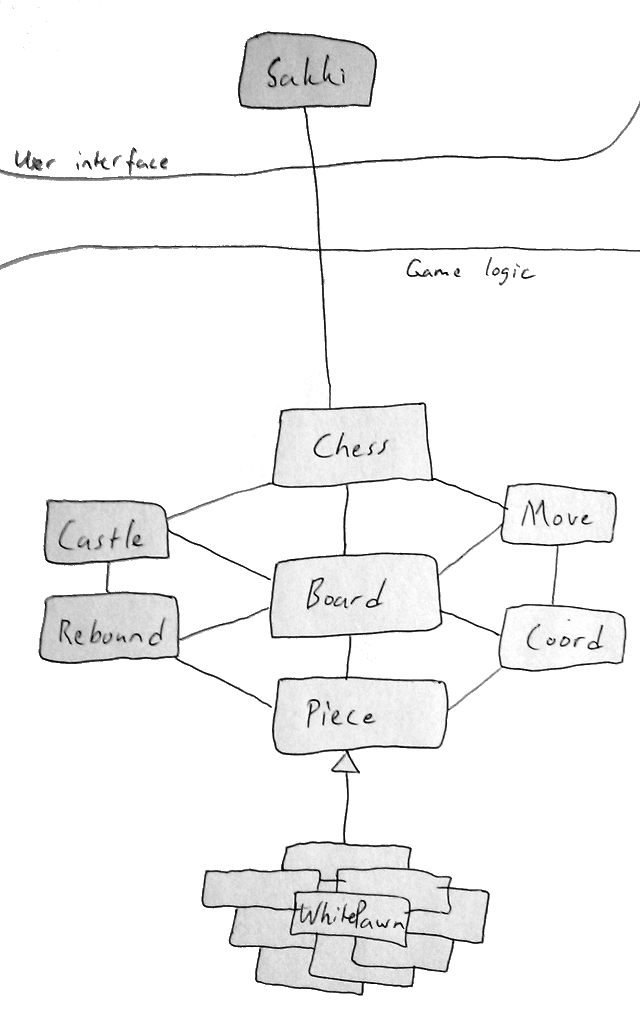 Sakki
User interface
Game logic
Chess
Castle
Move
Board
Rebound
Coord
Piece
WhitePawn